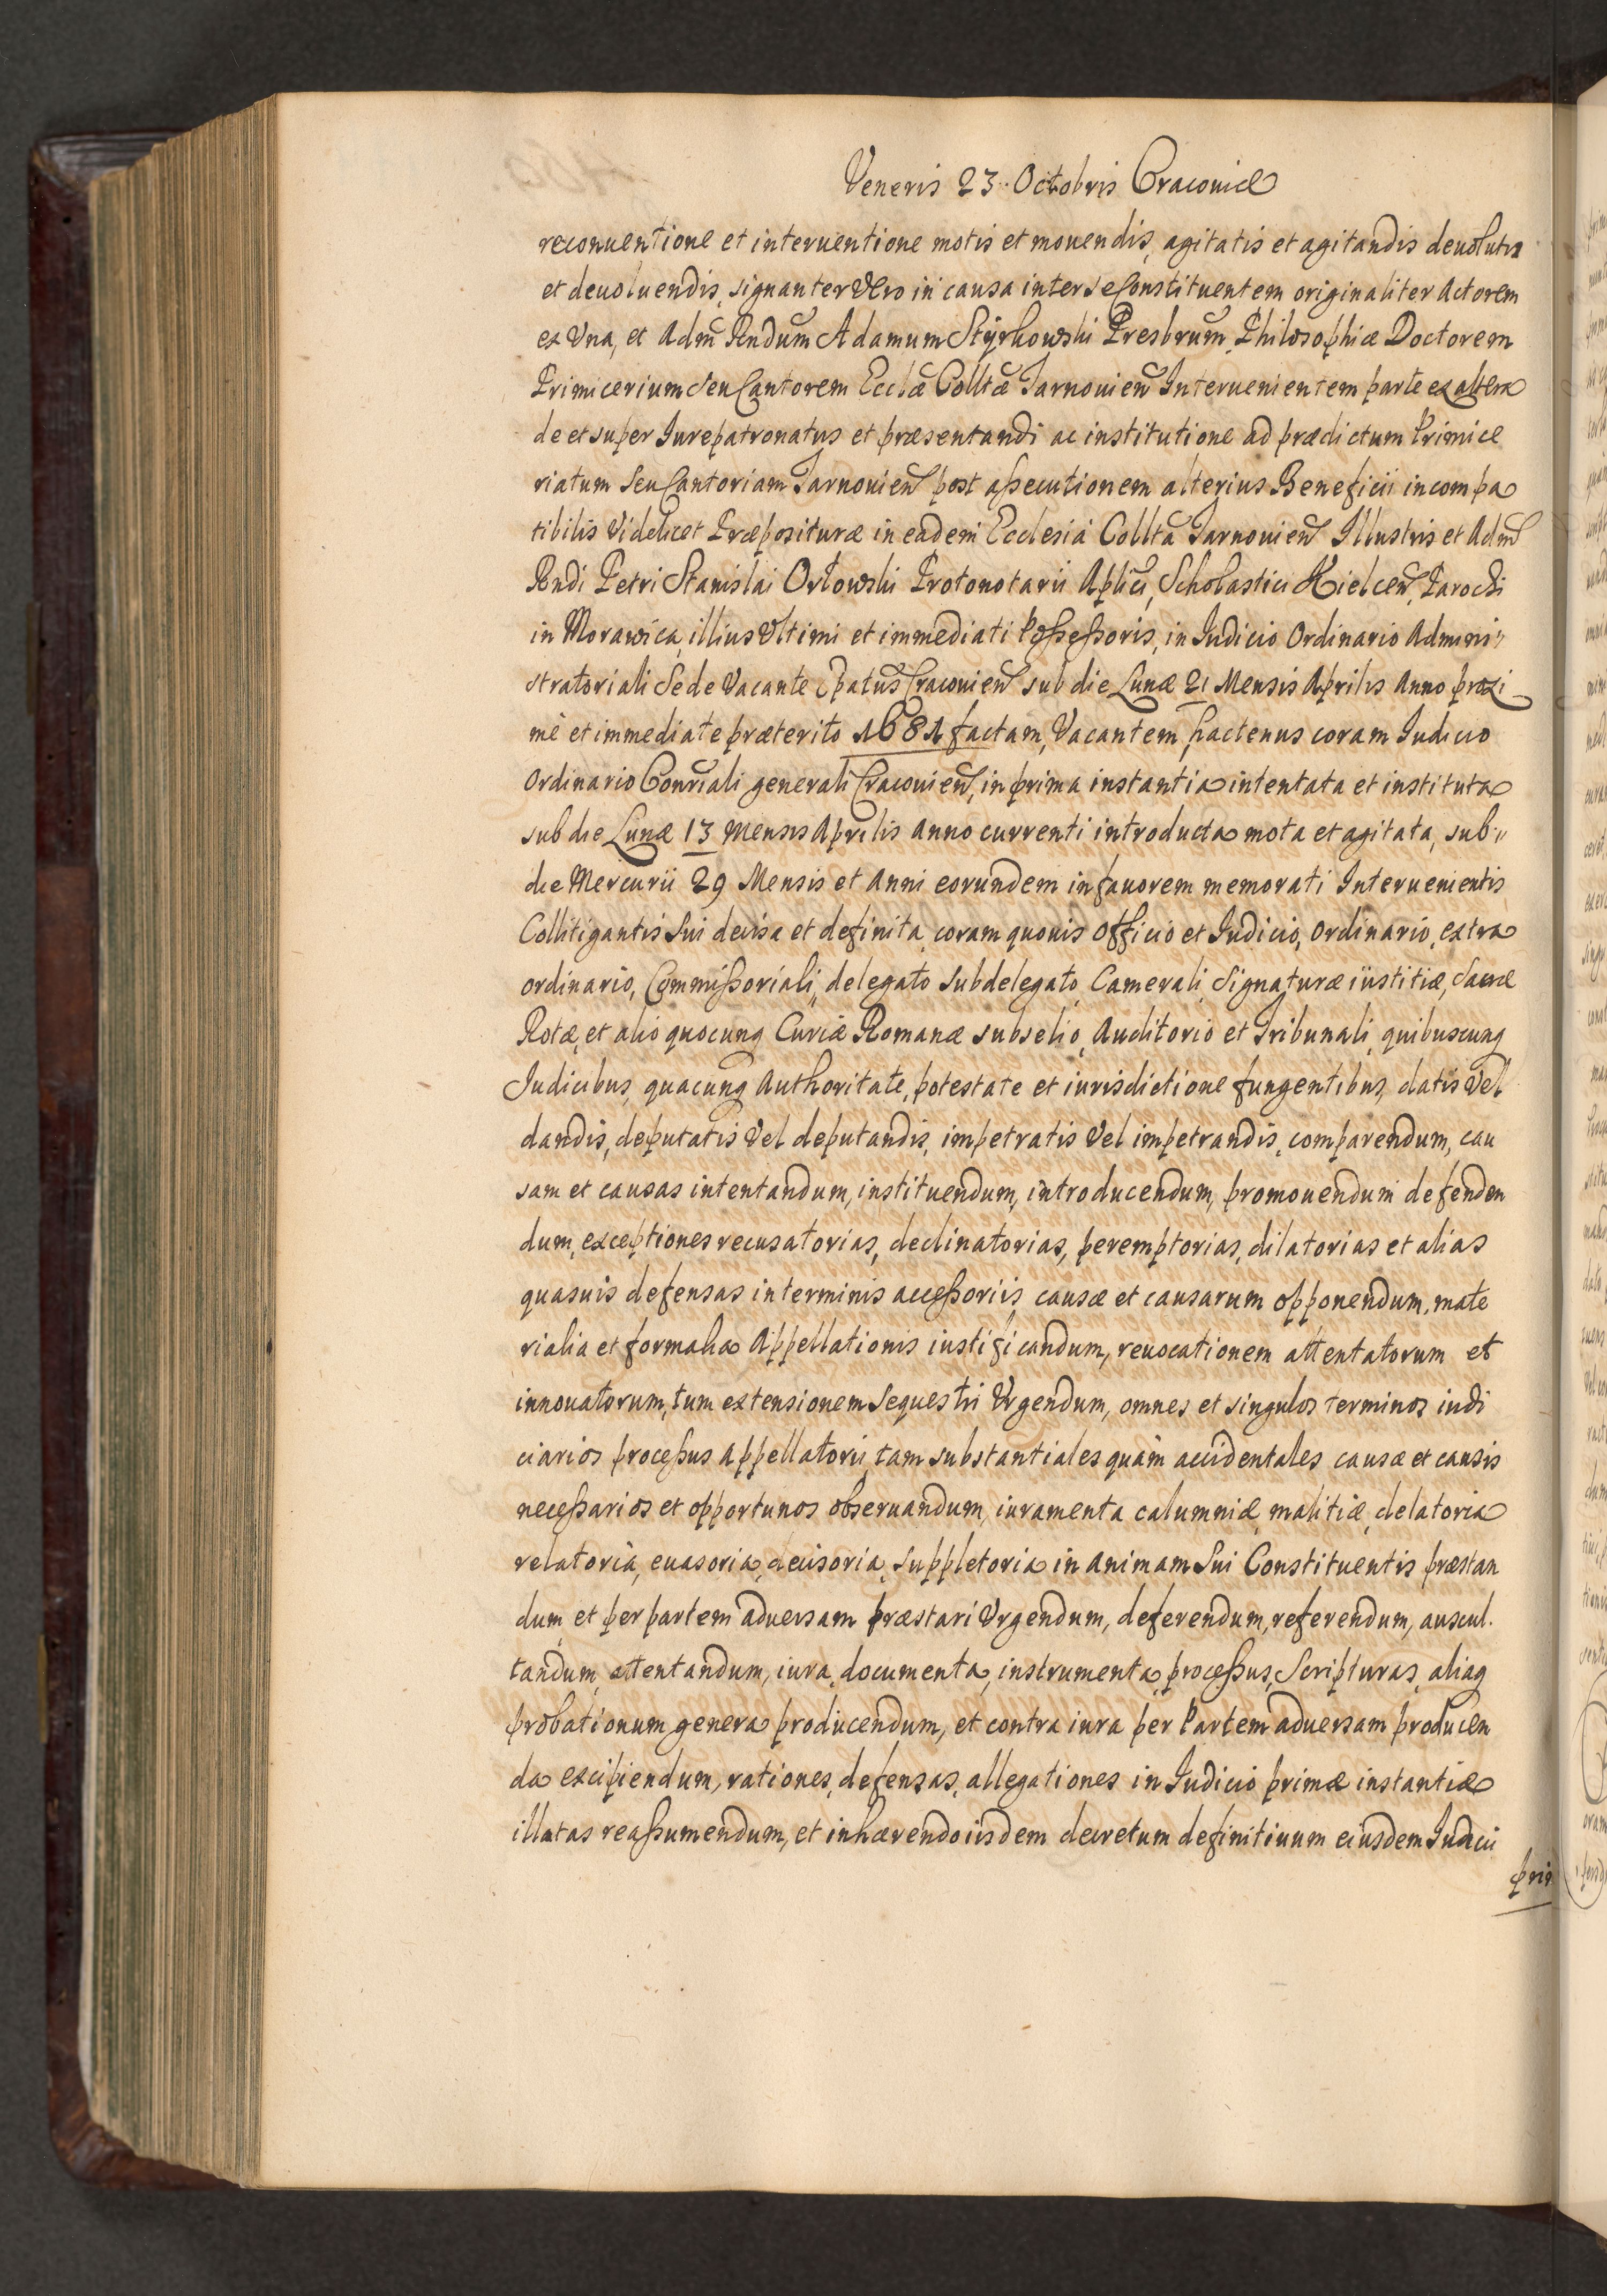 Veneris 23. Octobris Cracouiæ
reconuentione et interuentione motis et mouendis, agitatis et agitandis deuolutis
et deuoluendis, signanter Vero in causa inter se Constituentem originaliter Actorem
ex Vna, et Adm̃ Rndum Adamum Styrkowski Presbrum, Philosophiæ Doctorem
Primicerium Seu Cantorem Ecclæ Colltæ Tarnouien̄ Interuenientem parte ex altera
de et super Iurepatronatus et præsentandi ac institutione ad prædictum Primice
riatum Seu Cantoriam Tarnouien̄ post aßecutionem alterius Beneficii incompa
tibilis Videlicet Præposituræ in eadem Ecclesia Collta Tarnouien̄ Illustris et Adm̃
Rndi Petri Stanislai Orłowski Protonotarii Aplici, Scholastici Kielcen̄, Parochi
in Morawica, illius Vltimi et immediati Poßeßoris, in Iudicio Ordinario Admini„
stratoriali Sede Vacante Epatus Cracouien̄ sub die Lunæ 21 Mensis Aprilis Anno proxi
mè et immediate præterito 1681 factam, Vacantem, hactenus coram Iudicio
Ordinario Consriali generali Cracouien̄, in prima instantia intentata et instituta
sub die Lunæ 13 Mensis Aprilis Anno currenti introducta mota et agitata, sub„
die Mercurii 29 Mensis et Anni eorundem in fauorem memorati Interuenientis
Collitigantis Sui decisa et definita, coram quouis Officio et Iudicio, Ordinario, extra
ordinario, Commißoriali, delegato subdelegato, Camerali, Signaturæ iustitiæ, Sacræ
Rotæ, et alio quocunq Curiæ Romanæ subselio, Auditorio et Tribunali, quibuscunq
Iudicibus, quacunq Authoritate, potestate et iurisdictione fungentibus, datis Vel
dandis, deputatis Vel deputandis, impetratis Vel impetrandis, comparendum, cau
sam et causas intentandum, instituendum, introducendum, promouendum defenden
dum, exceptiones recusatorias, declinatorias, peremptorias, dilatorias et alias
quasuis defensas in terminis acceßoriis causæ et causarum opponendum, mate
rialia et formalia Appellationis iustificandum, reuocationem attentatorum et
innouatorum, tum extensionem Sequestri Vrgendum, omnes et singulos terminos iudi
ciarios proceßus Appellatorii, tam substantiales quàm accidentales causæ et causis
neceßarios et opportunos obseruandum, iuramenta calumniæ, malitiæ, delatoria
relatoria, euasoria, decisoria, suppletoria in animam Sui Constituentis præstan
dum, et per partem aduersam præstari Vrgendum, deferendum, referendum, auscul.
tandum, attentandum, iura, documenta, instrumenta, proceßus, Scripturas, aliaq
probationum genera producendum, et contra iura per Partem aduersam producen
da excipiendum, rationes, defensas, allegationes in Iudicio primæ instantiæ
illatas reaßumendum, et inhærendo iisdem decretum definitiuum eiusdem Iudicii